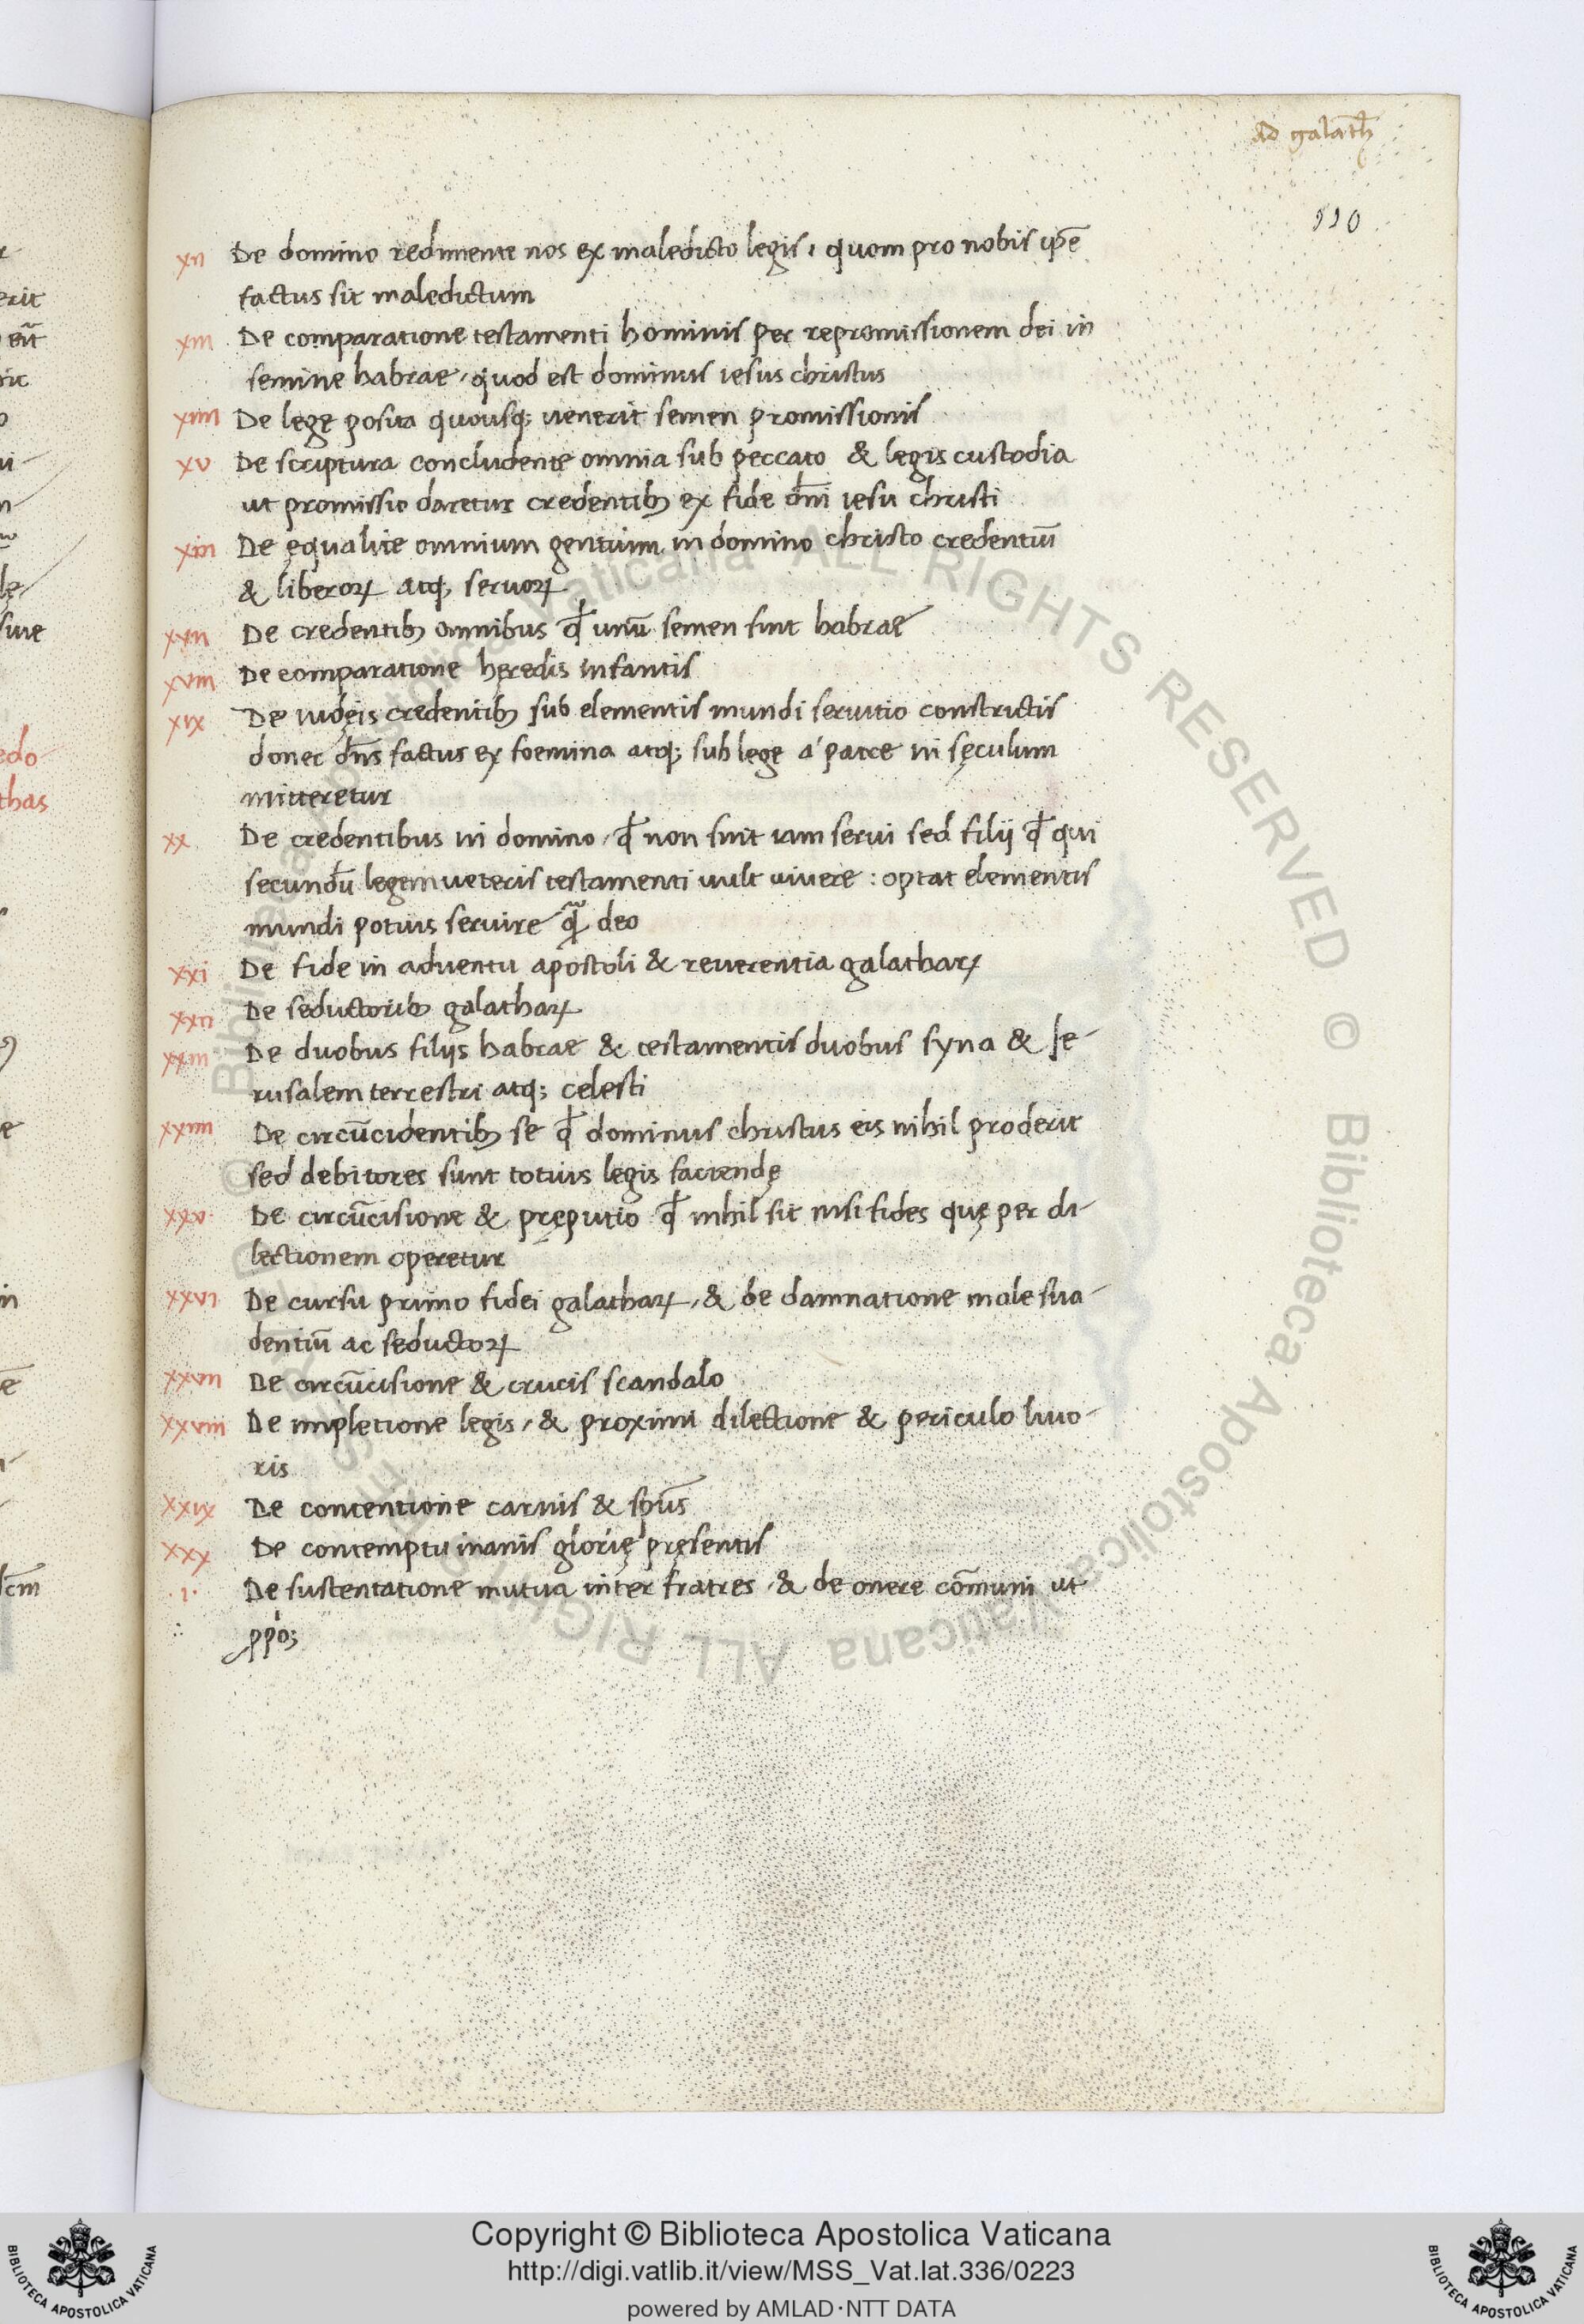 Ad galath̄
110
xii De domino redimente nos ex maledicto legis, quom pro nobis ip̄e
factus sit maledictum
xiii De comparatione testamenti hominis per repromissionem dei in
semine habrae, quod est dominus iesus christus
xiiii De lege posita quousq; uenerit semen promissionis
xv De scriptura concludente omnia sub peccato & legis custodia
ut promissio daretur credentibꝫ ex fide dn̄i iesu christi
De ęqualite omnium gentium in domino christo credentiū
& liberoꝝ atq; seruoꝝ
xvii De credentibꝫ omnibus ꝙ unū semen sint habrae
xviii De comparatione hęredis infantis
xix De iudęis credentibꝫ sub elementis mundi seruitio constrictis
donec dn̄s factus ex foemina atq; sub lege a' patre in sęculum
mitteretur
xx De credentibus in domino, ꝙ non sint iam serui sed filij ꝙ qui
secundū legem ueteris testamenti uult uiuere : optat elementis
mundi potius seruire q̄ deo
xxi De fide in aduentu apostoli & reuerentia galathaꝝ
xxii De seductoribꝫ galathaꝝ
xxiii De duobus filijs habrae & testamentis duobus syna & Ie-
rusalem terrestri atq; celesti
xxiiii De circūcidentibꝫ se ꝙ dominus christus eis nihil proderit
sed debitores sunt totius legis faciendę
xxv De circūcisione & pręputio ꝙ nihil sit nisi fides quę per di-
lectionem operetur
xxvi De cursu primo fidei galathaꝝ, & de damnatione male sua-
dentiū ac seductoꝝ
xxvii De circūcisione & crucis scandalo
xxviii De impletione legis, & proximi dilectione & periculo liuo-
ris
xxix De contentione carnis & sp̄us
xxx De contemptu inanis glorię pręsentis
.i. De sustentatione mutua inter fratres, & de onere cōmuni ut
Copyright © Biblioteca Apostolica Vaticana
http://digi.vatlib.it/view/MSS_Vat.lat.336/0223
powered by AMLAD·NTT DATA
BIBLIOTECA APOSTOLICA VATICANA
BIBLIOTECA APOSTOLICA VATICANA